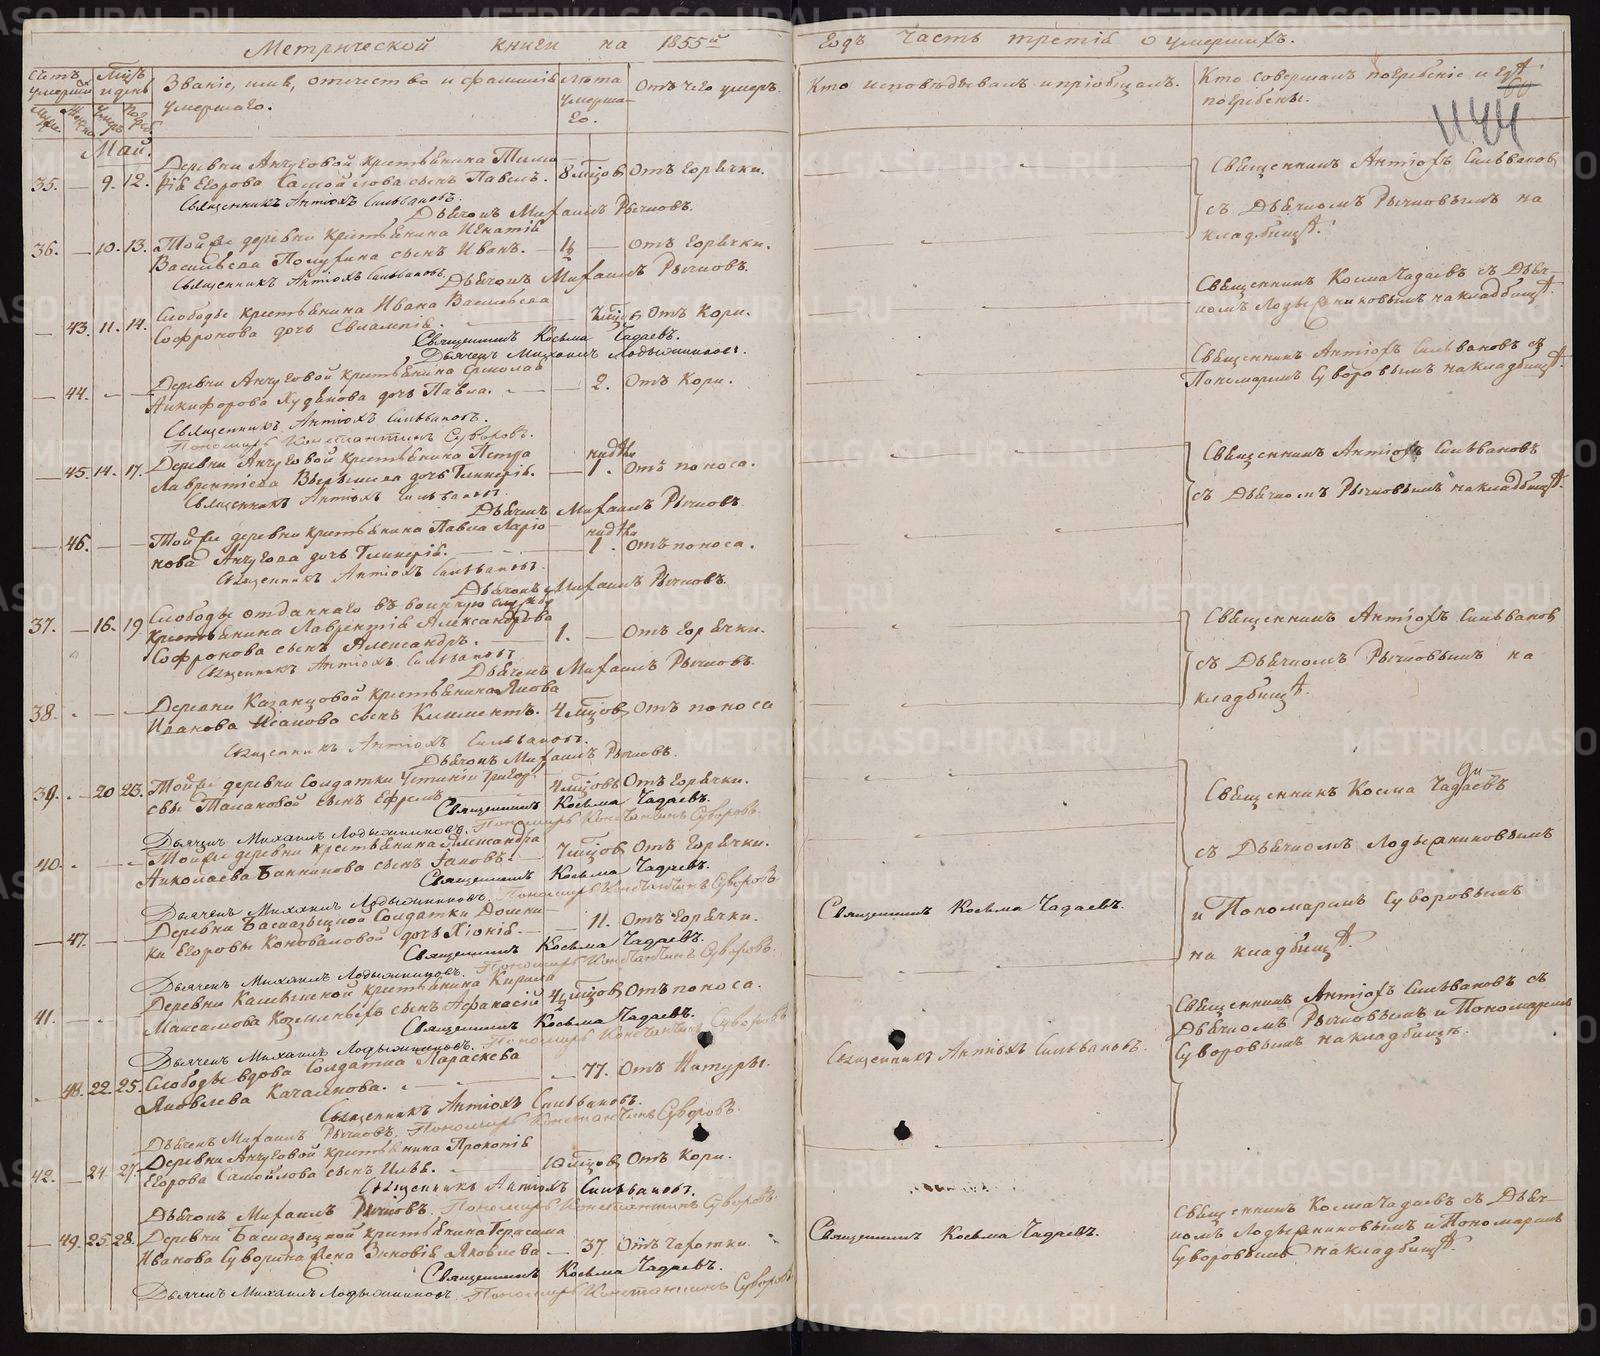 Метрической книги на 1855й
Годъ Часть третія о умершихъ.
Счетъ умершихъ
Муж.
Женс.
Мцъ и день
Умер.
Погреб.
Званіе, имя, отечество и фамилія умершаго.
Лѣта умершаго.
Отъ чего умеръ.
Кто исповѣдывалъ и пріобщалъ.
Кто совершалъ погребеніе и гдѣ
погребены.
1144
Май.
Деревни Анчуговой крестьянина Тимо
35. — 9. 12. фія Егорова Самойлова сынъ Павелъ. 8 мцов Отъ горячки.
Священникъ Антіохъ Сильвановъ.
Дьячокъ Михаилъ Рычковъ.
Священникъ Антіохъ Сильванов
съ Дьячкомъ Рычковымъ на
кладбищѣ.
Той же деревни крестьянина Игнатія
36. — 10. 13. Васильева Полухина сынъ Иванъ. — Отъ горячки.
Священникъ Антіохъ Сильвановъ.
Дьячокъ Михаилъ Рычковъ.
Слободы крестьянина Ивана Васильева
— 43. 11. 14. Софронова дочь Евлампія. Отъ Кори.
Священникъ Косьма Чадаевъ.
Дьячекъ Михаилъ Лодыжниковъ.
Священникъ Косма Чадаевъ съ Дьяч-
комъ Лодыжниковымъ на кладбищѣ.
Деревни Анчуговой крестьянина Ермолая
— 44. — — Никифорова Худякова дочь Павла. 2. Отъ Кори.
Священникъ Антіохъ Сильвановъ.
Пономарь Константинъ Суворовъ.
Священникъ Антіохъ Сильвановъ съ
Пономаремъ Суворовымъ на кладбищѣ.
Деревни Анчуговой крестьянина Петра
— 45. 14. 17. Лаврентіева дочь Гликерія. 1. Отъ поноса.
Священникъ Антіохъ Сильвановъ.
Дьячекъ Михаилъ Рычковъ.
Священникъ Антіохъ Сильвановъ
съ Дьячкомъ Рычковымъ на кладбищѣ.
Той же деревни крестьянина Павла Ларіо
— 46. — — нова Анчугова дочь Гликерія. 1. Отъ поноса.
Священникъ Антіохъ Сильвановъ.
Дьячокъ Михаилъ Рычковъ.
Слободы отданнаго въ военную службу
37. — 16. 19 крестьянина Лаврентія Александрова
Софронова сынъ Александръ. 1. — Отъ горячки.
Священникъ Антіохъ Сильвановъ
Дьячекъ Михаилъ Рычковъ.
Священникъ Антіохъ Сильванов
съ Дьячкомъ Рычковымъ на
кладбищѣ.
Деревни Казанцовой крестьянина Якова
38. Иванова Исакова сынъ Климентъ. 4 мцов Отъ поноса
Священникъ Антіохъ Сильвановъ.
Дьячокъ Михаилъ Рычковъ.
Той же деревни Солдатки Устиніи Григорь
39. — 20 23. евы сынъ Ефремъ 4 мцовъ Отъ Горячки.
Священникъ Косьма Чадаевъ.
Дьячекъ Михаилъ Лодыжниковъ. Пономарь Константинъ Суворовъ.
Священникъ Косма Чадаевъ
съ Дьячкомъ Лодыжниковымъ
и Пономаремъ Суворовымъ
на кладбищѣ.
Той же деревни крестьянина Александра
40. — — Николаева Банникова сынъ Іаковъ. 7 мцов Отъ Горячки.
Священникъ Косьма Чадаевъ.
Дьячекъ Михаилъ Лодыжниковъ. Пономарь Константинъ Суворовъ
Деревни Басмазецкой Солдатки Домни
— 47. — — ки Егоровы Коноваловой дочь Хіонія. — 11. Отъ Горячки.
Священникъ Косьма Чадаевъ.
Дьячекъ Михаилъ Лодыжниковъ. Пономарь Константинъ Суворовъ.
Священникъ Косьма Чадаевъ.
Деревни крестьянина Кирила
41. Максимова сынъ Афанасій Отъ поноса.
Священникъ Косьма Чадаевъ.
Дьячекъ Михаилъ Лодыжниковъ. Пономарь Константинъ Суворовъ
Священникъ Антіохъ Сильвановъ съ
Дьячкомъ Рычковымъ и Пономаремъ
Суворовымъ на кладбищѣ.
Слободы вдова Солдатка Параскева
48. 22. 25. Яковлева Качалкова. 77. Отъ Натуры.
Священникъ Антіохъ Сильвановъ.
Дьячекъ Михаилъ Рычковъ. Пономарь Константинъ Суворовъ.
Священникъ Антіохъ Сильвановъ.
Деревни Анчуговой крестьянина Прокопія
42. — 24. 27. Егорова Самойлова сынъ Илья. 10 мцов Отъ Кори.
Священникъ Антіохъ Сильвановъ.
Дьячокъ Михаилъ Рычковъ. Пономарь Константинъ Суворовъ.
Деревни Басмазецкой крестьянина Герасима
— 49. 25. 28. Иванова Суворина жена Зиновія Яковлева — 37 Отъ Чахотки.
Священникъ Косьма Чадаевъ.
Дьячекъ Михаилъ Лодыжниковъ. Пономарь Константинъ Суворовъ
Священникъ Косьма Чадаевъ.
Священникъ Косма Чадаевъ съ Дьяч-
комъ Лодыжниковымъ и Пономаремъ
Суворовымъ на кладбищѣ.
METRIKI.GASO-URAL.RU